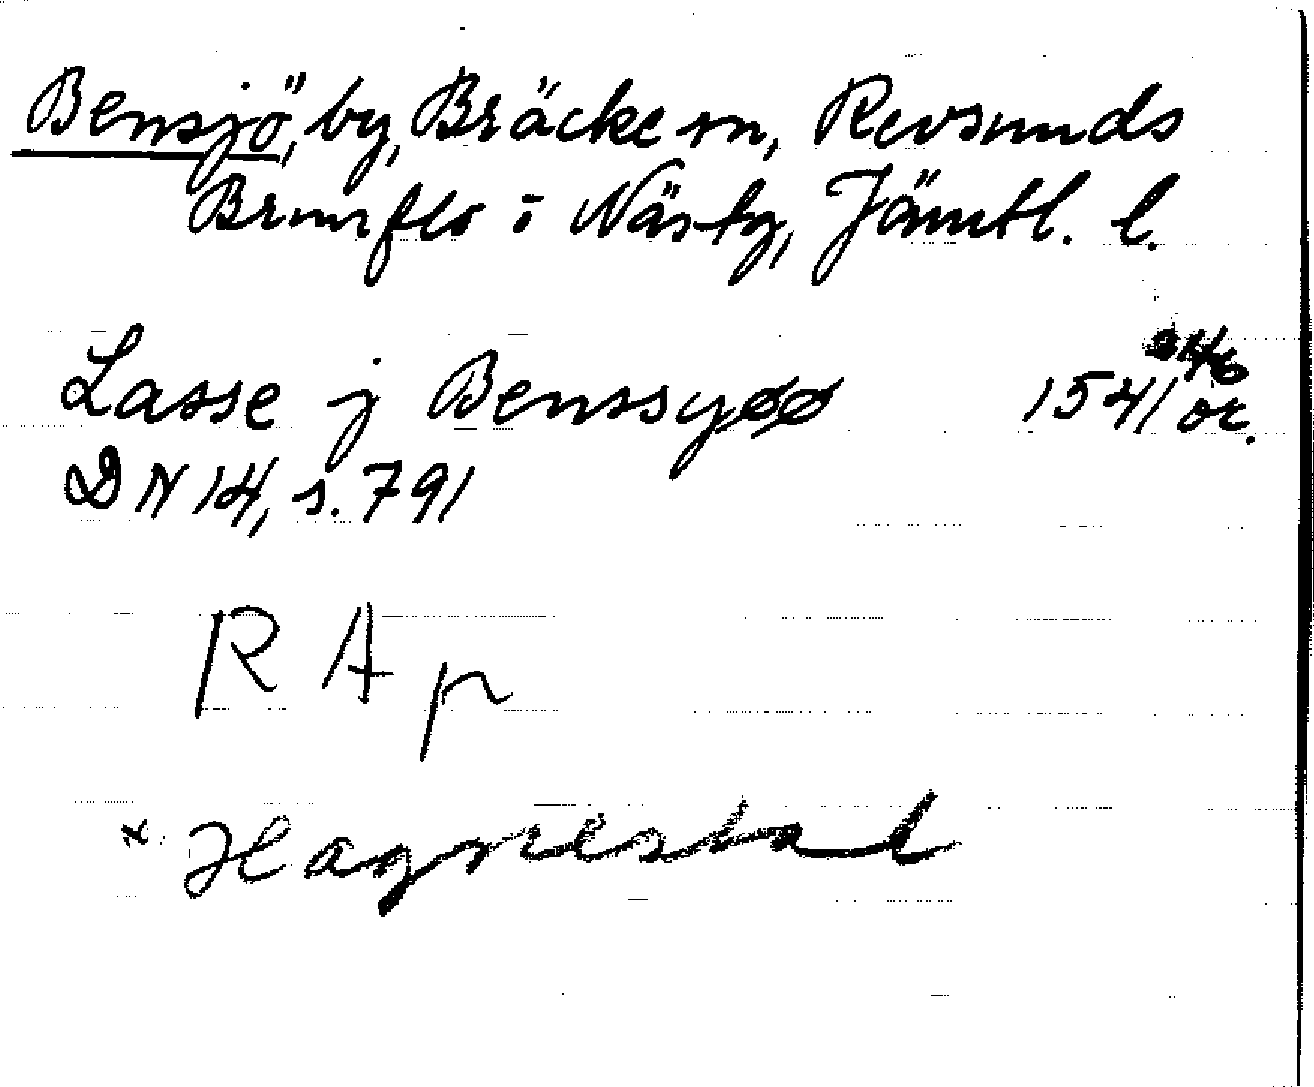 Bensjö, by, Bräcke sn, Revsunds
Brunflo i Näs tg, Jämtl. l.
Lasse j Benssyøø 1541 24/6 or.
DN 14, s. 791
R A p
* Hagnestad